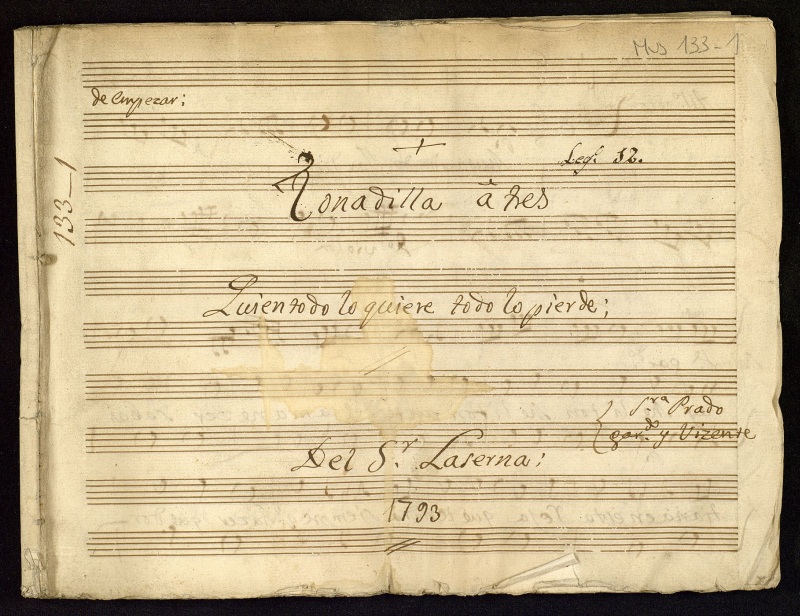 Mus 133-1
de Empezar;
133-1
Leg.º 12.
Tonadilla â tres
Quien todo lo quiere todo lo pierde;
S.ra Prado
gar.do y Vizente
Del S.r Laserna;
1793